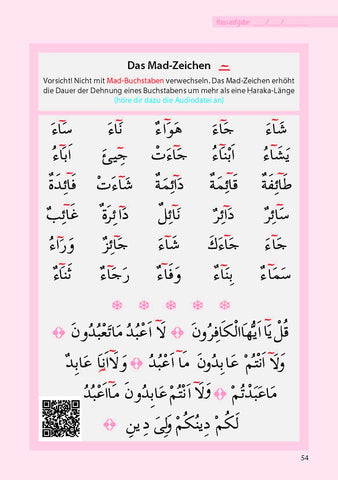 Hausaufgabe: ___/___/______
Das Mad-Zeichen ـٓـ
Vorsicht! Nicht mit Mad-Buchstaben verwechseln. Das Mad-Zeichen erhöht
die Dauer der Dehnung eines Buchstabens um mehr als eine Ḥaraka-Länge
(höre dir dazu die Audiodatei an)
شَآءَ جَآءَ هَوَآءٌ نَآءَ سَآءَ
يَشَآءُ اَبْنَآءُ جَآءَتْ جِيٓئَ اٰبَآءُ
طَآئِفَةٌ قَآئِمَةٌ دَآئِمَةٌ شَآءَتْ فَآئِدَةٌ
سَآئِرٌ دَآئِرٌ نَآئِلٌ دَآئِرَةٌ غَآئِبٌ
جَآءَ جَآءَكَ شَآءَ جَآئِزٌ وَرَآءُ
سَمَآءٌ بِنَآءٌ وَفَآءٌ رَجَآءٌ ثَنَآءٌ
قُلْ يَآ اَيُّهَا الْكَافِرُونَ ﴿﴾ لَآ اَعْبُدُ مَا تَعْبُدُونَ ﴿﴾
وَلَآ اَنْتُمْ عَابِدُونَ مَآ اَعْبُدُ ﴿﴾ وَلَآ اَنَا عَابِدٌ
مَا عَبَدْتُمْ ﴿﴾ وَلَآ اَنْتُمْ عَابِدُونَ مَآ اَعْبُدُ ﴿﴾
لَكُمْ دِينُكُمْ وَلِىَ دِينِ ﴿﴾
54